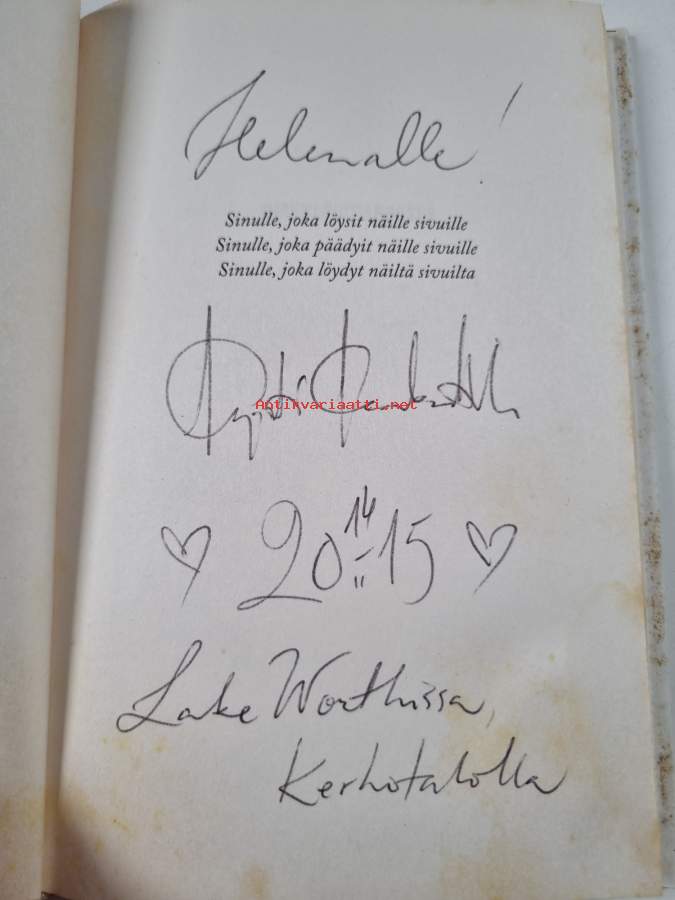 Helenalle!
Sinulle, joka löysit näille sivuille
Sinulle, joka päädyit näille sivuille
Sinulle, joka löydyt näiltä sivuilta
Antikvariaatti.net
20 14/11 15
Lake Worthissa,
Kerhotalolla